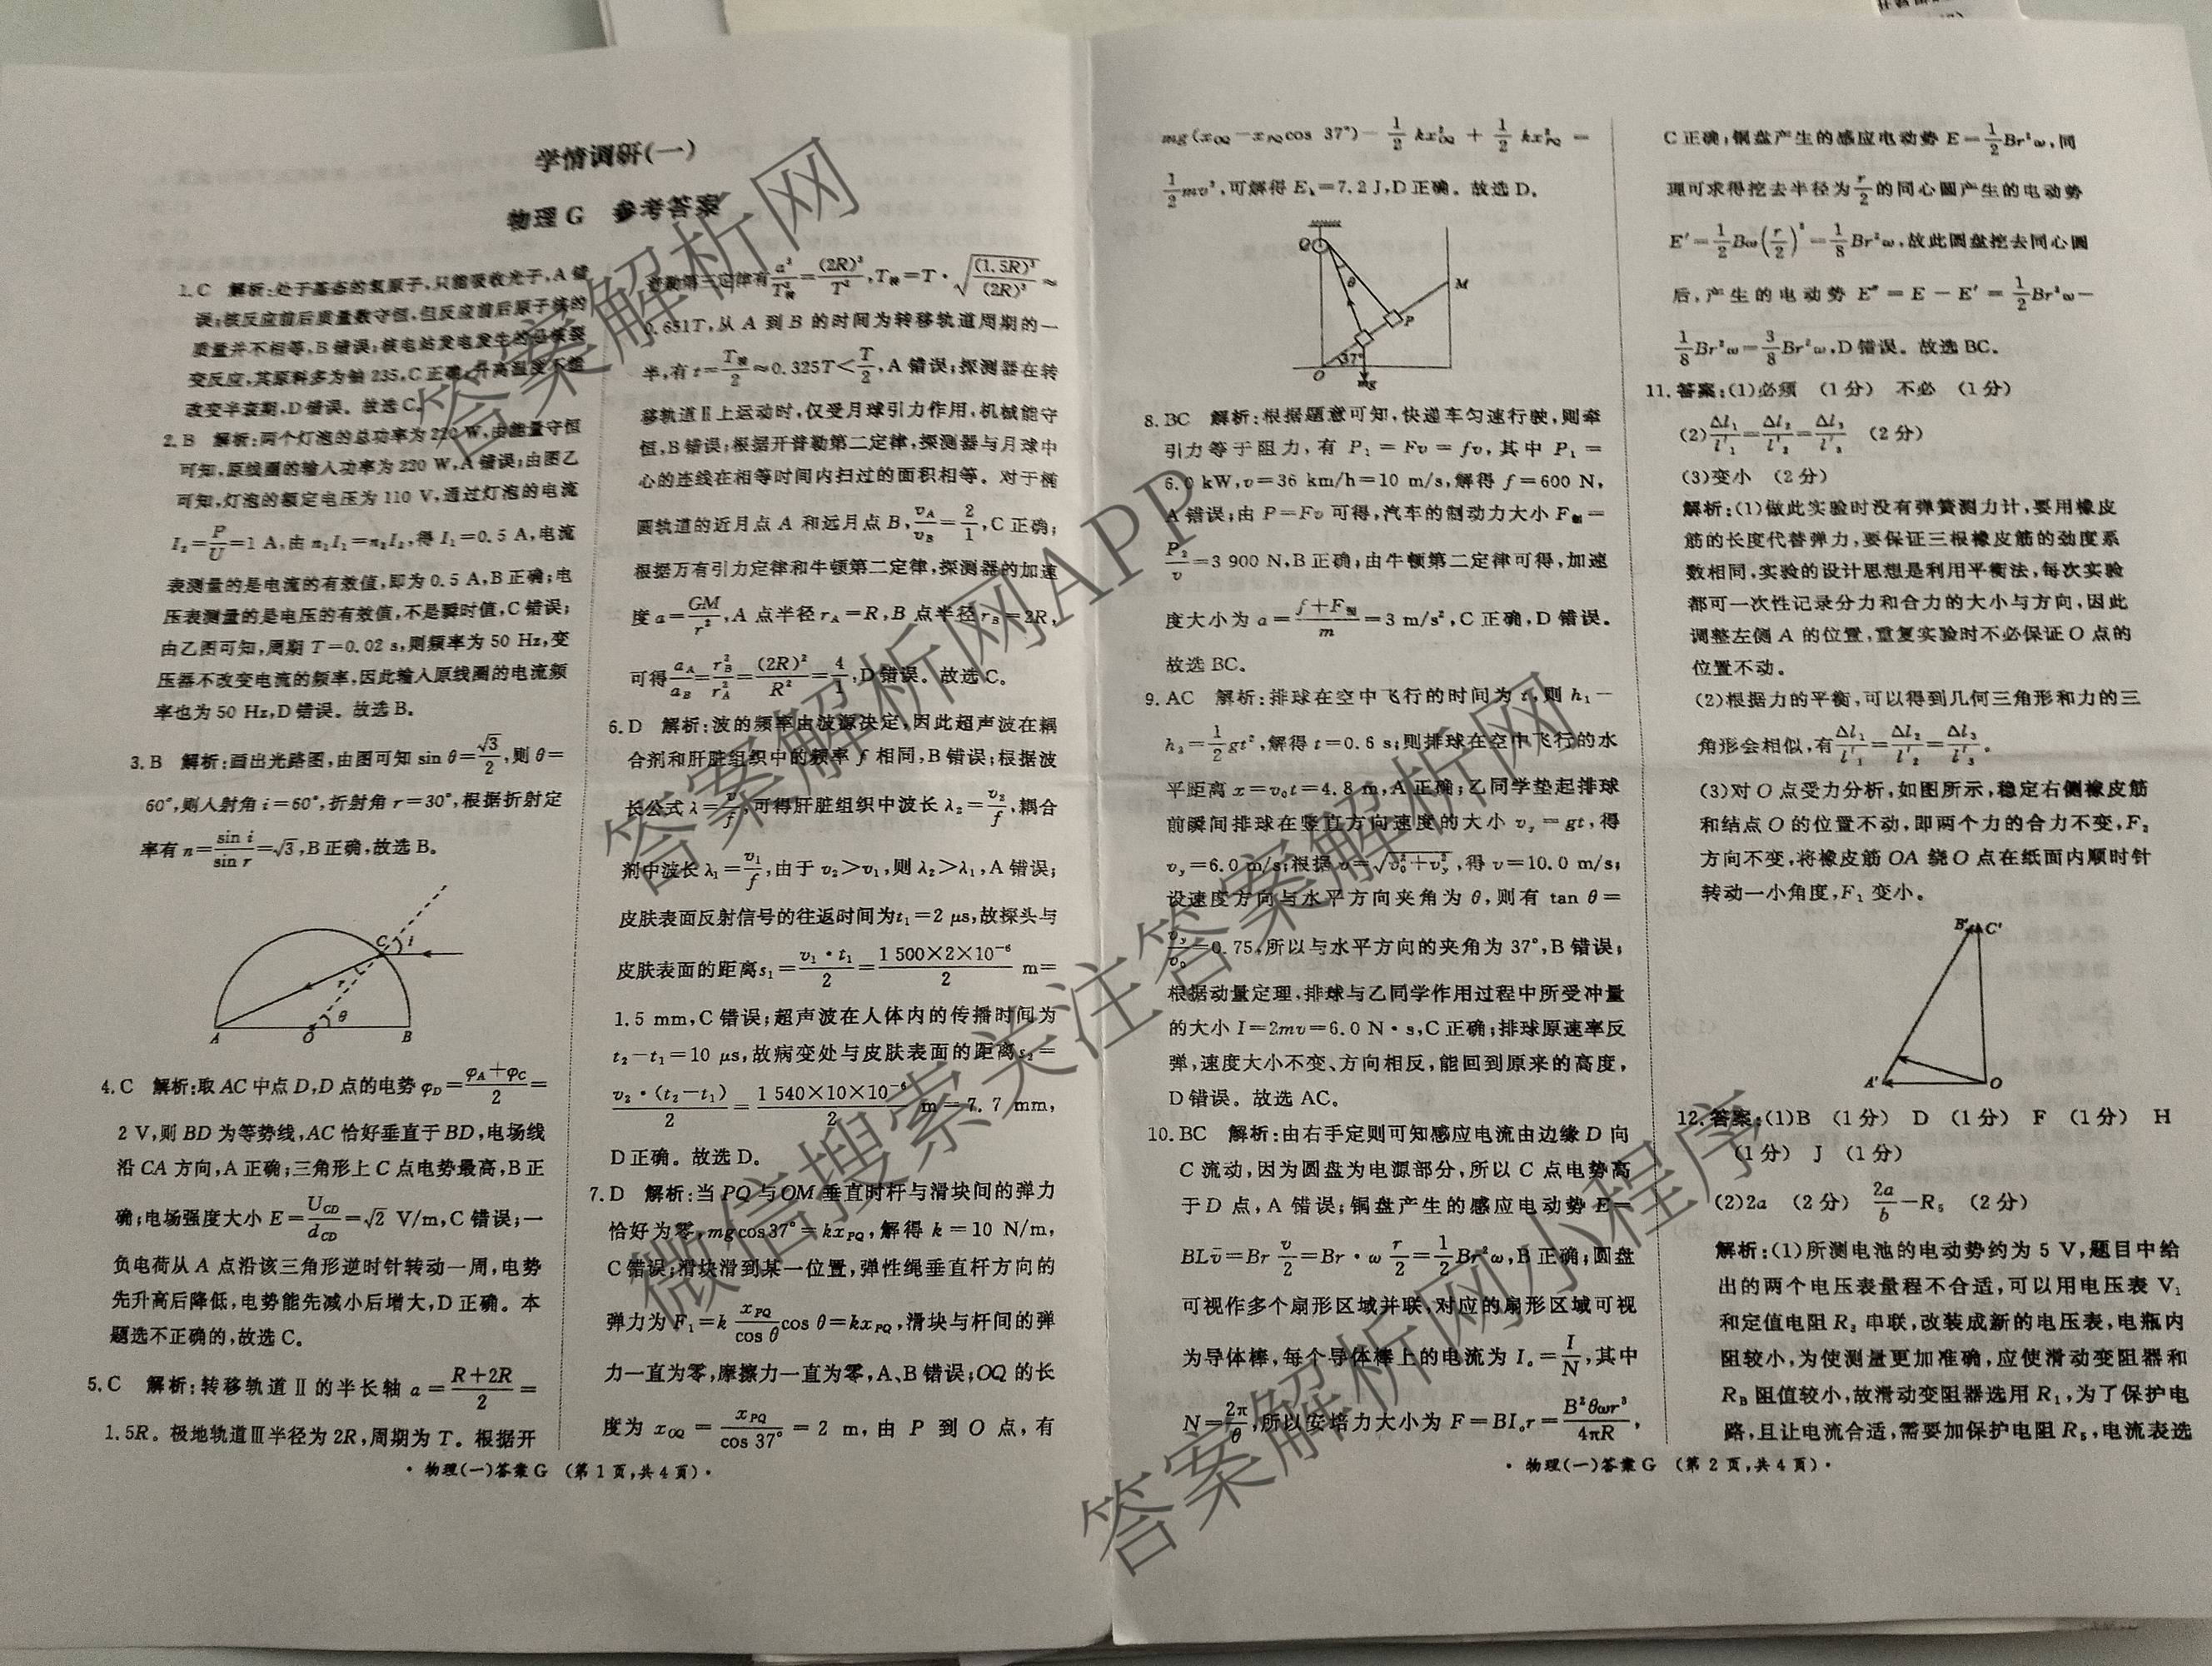 学情调研(一)
物理G 参考答案
1. C 解析:处于基态的氢原子,只能吸收光子,A错
误;核反应前后质量数守恒,但反应前后原子核的
质量并不相等,B错误;核电站发电发生的是核裂
变反应,其原料多为铀235,C正确;升高温度不能
改变半衰期,D错误。故选C。
2. B 解析:两个灯泡的总功率为220 W,由能量守恒
可知,原线圈的输入功率为220 W,A错误;由图乙
可知,灯泡的额定电压为110 V,通过灯泡的电流
I₂=P/U=1 A,由n₁I₁=n₂I₂,得I₁=0.5 A,电流
表测量的是电流的有效值,即为0.5 A,B正确;电
压表测量的是电压的有效值,不是瞬时值,C错误;
由乙图可知,周期T=0.02 s,则频率为50 Hz,变
压器不改变电流的频率,因此输入原线圈的电流频
率也为50 Hz,D错误。故选B。
3. B 解析:画出光路图,由图可知sin θ=√3/2,则θ=
60°,则入射角i=60°,折射角r=30°,根据折射定
率有n=sin i/sin r=√3,B正确,故选B。
C i
r
θ
A O B
4. C 解析:取AC中点D,D点的电势φ_D=(φ_A+φ_C)/2=
2 V,则BD为等势线,AC恰好垂直于BD,电场线
沿CA方向,A正确;三角形上C点电势最高,B正
确;电场强度大小E=U_CD/d_CD=√2 V/m,C错误;一
负电荷从A点沿该三角形逆时针转动一周,电势
先升高后降低,电势能先减小后增大,D正确。本
题选不正确的,故选C。
5. C 解析:转移轨道Ⅱ的半长轴a=(R+2R)/2=
1.5R。极地轨道Ⅲ半径为2R,周期为T。根据开
普勒第三定律有a³/T转²=(2R)³/T²,T转=T·√((1.5R)³/(2R)³)≈
0.651T,从A到B的时间为转移轨道周期的一
半,有t=T转/2≈0.325T<T/2,A错误;探测器在转
移轨道Ⅱ上运动时,仅受月球引力作用,机械能守
恒,B错误;根据开普勒第二定律,探测器与月球中
心的连线在相等时间内扫过的面积相等。对于椭
圆轨道的近月点A和远月点B,v_A/v_B=2/1,C正确;
根据万有引力定律和牛顿第二定律,探测器的加速
度a=GM/r²,A点半径r_A=R,B点半径r_B=2R,
可得a_A/a_B=r_B²/r_A²=(2R)²/R²=4/1,D错误。故选C。
6. D 解析:波的频率由波源决定,因此超声波在耦
合剂和肝脏组织中的频率f相同,B错误;根据波
长公式λ=v/f,可得肝脏组织中波长λ₂=v₂/f,耦合
剂中波长λ₁=v₁/f,由于v₂>v₁,则λ₂>λ₁,A错误;
皮肤表面反射信号的往返时间为t₁=2 μs,故探头与
皮肤表面的距离s₁=(v₁·t₁)/2=(1 500×2×10⁻⁶)/2 m=
1.5 mm,C错误;超声波在人体内的传播时间为
t₂-t₁=10 μs,故病变处与皮肤表面的距离s₂=
v₂·(t₂-t₁)/2=(1 540×10×10⁻⁶)/2 m=7.7 mm,
D正确。故选D。
7. D 解析:当PQ与OM垂直时杆与滑块间的弹力
恰好为零,mgcos37°=kx_PQ,解得k=10 N/m,
C错误;滑块滑到某一位置,弹性绳垂直杆方向的
弹力为F₁=k(x_PQ/cos θ)cos θ=kx_PQ,滑块与杆间的弹
力一直为零,摩擦力一直为零,A、B错误;OQ的长
度为x_OQ=x_PQ/cos 37°=2 m,由P到O点,有
·物理(一)答案G (第1页,共4页)·
mg(x_OQ-x_PQcos 37°)-1/2kx²_OQ+1/2kx²_PQ=
1/2mv²,可解得E_k=7.2 J,D正确。故选D。
Q
θ
M
P
37°
O mg
8. BC 解析:根据题意可知,快递车匀速行驶,则牵
引力等于阻力,有P₁=Fv=fv,其中P₁=
6.0 kW,v=36 km/h=10 m/s,解得f=600 N,
A错误;由P=Fv可得,汽车的制动力大小F制=
P₂/v=3 900 N,B正确;由牛顿第二定律可得,加速
度大小为a=(f+F制)/m=3 m/s²,C正确,D错误。
故选BC。
9. AC 解析:排球在空中飞行的时间为t,则h₁-
h₃=1/2gt²,解得t=0.6 s;则排球在空中飞行的水
平距离x=v₀t=4.8 m,A正确;乙同学垫起排球
前瞬间排球在竖直方向速度的大小v_y=gt,得
v_y=6.0 m/s;根据v=√(v₀²+v_y²),得v=10.0 m/s;
设速度方向与水平方向夹角为θ,则有tan θ=
v_y/v₀=0.75,所以与水平方向的夹角为37°,B错误;
根据动量定理,排球与乙同学作用过程中所受冲量
的大小I=2mv=6.0 N·s,C正确;排球原速率反
弹,速度大小不变、方向相反,能回到原来的高度,
D错误。故选AC。
10. BC 解析:由右手定则可知感应电流由边缘D向
C流动,因为圆盘为电源部分,所以C点电势高
于D点,A错误;铜盘产生的感应电动势E=
BLv̄=Br v/2=Br·ω r/2=1/2Br²ω,B正确;圆盘
可视作多个扇形区域并联,对应的扇形区域可视
为导体棒,每个导体棒上的电流为I₀=I/N,其中
N=2π/θ,所以安培力大小为F=BI₀r=B²θωr³/4πR,
C正确;铜盘产生的感应电动势E=1/2Br²ω,同
理可求得挖去半径为r/2的同心圆产生的电动势
E′=1/2Bω(r/2)²=1/8Br²ω,故此圆盘挖去同心圆
后,产生的电动势E″=E-E′=1/2Br²ω-
1/8Br²ω=3/8Br²ω,D错误。故选BC。
11. 答案:(1)必须 (1分) 不必 (1分)
(2)Δl₁/l′₁=Δl₂/l′₂=Δl₃/l′₃ (2分)
(3)变小 (2分)
解析:(1)做此实验时没有弹簧测力计,要用橡皮
筋的长度代替弹力,要保证三根橡皮筋的劲度系
数相同,实验的设计思想是利用平衡法,每次实验
都可一次性记录分力和合力的大小与方向,因此
调整左侧A的位置,重复实验时不必保证O点的
位置不动。
(2)根据力的平衡,可以得到几何三角形和力的三
角形会相似,有Δl₁/l′₁=Δl₂/l′₂=Δl₃/l′₃。
(3)对O点受力分析,如图所示,稳定右侧橡皮筋
和结点O的位置不动,即两个力的合力不变,F₂
方向不变,将橡皮筋OA绕O点在纸面内顺时针
转动一小角度,F₁变小。
B′ C′
A′ O
12. 答案:(1)B (1分) D (1分) F (1分) H
(1分) J (1分)
(2)2a (2分) 2a/b-R₅ (2分)
解析:(1)所测电池的电动势约为5 V,题目中给
出的两个电压表量程不合适,可以用电压表V₁
和定值电阻R₃串联,改装成新的电压表,电瓶内
阻较小,为使测量更加准确,应使滑动变阻器和
R_B阻值较小,故滑动变阻器选用R₁,为了保护电
路,且让电流合适,需要加保护电阻R₅,电流表选
·物理(一)答案G (第2页,共4页)·
答案解析网
答案解析网APP
微信搜索关注答案解析网
答案解析网小程序